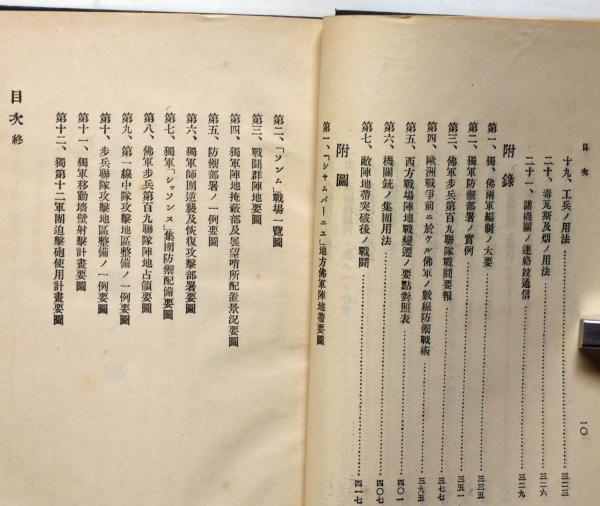 目次
一〇
十九、工兵ノ用法……三二三
二十、毒瓦斯及烟ノ用法……三二六
二十一、諸機關ノ連絡竝通信……三二九
附錄
第一、獨、佛兩軍編制ノ大要……三三五
第二、獨軍防禦部署ノ實例……三五一
第三、佛軍步兵第百九聯隊戰鬪要報……三七七
第四、歐洲戰爭前ニ於ケル佛軍ノ數線防禦戰術……三九五
第五、西方戰場陣地戰變遷ノ要點對照表……四〇一
第六、機關銃ノ集團用法……四〇七
第七、敵陣地帶突破後ノ戰鬪……四一七
附圖
第一、「シャムパーニユ」地方佛軍陣地帶要圖
第二、「ソンム」戰場一覽圖
第三、戰鬪群陣地要圖
第四、獨軍陣地掩蔽部及展望哨所配置景況要圖
第五、防禦部署ノ一例要圖
第六、獨軍師團逆襲及恢復攻擊部署要圖
第七、獨軍「シッソンヌ」集團防禦配備要圖
第八、佛軍步兵第百九聯隊陣地占領要圖
第九、第一線中隊攻擊地區整備ノ一例要圖
第十、步兵聯隊攻擊地區整備ノ一例要圖
第十一、獨軍移動墻壁射擊計畫要圖
第十二、獨第十二軍團迫擊砲使用計畫要圖
目次 終